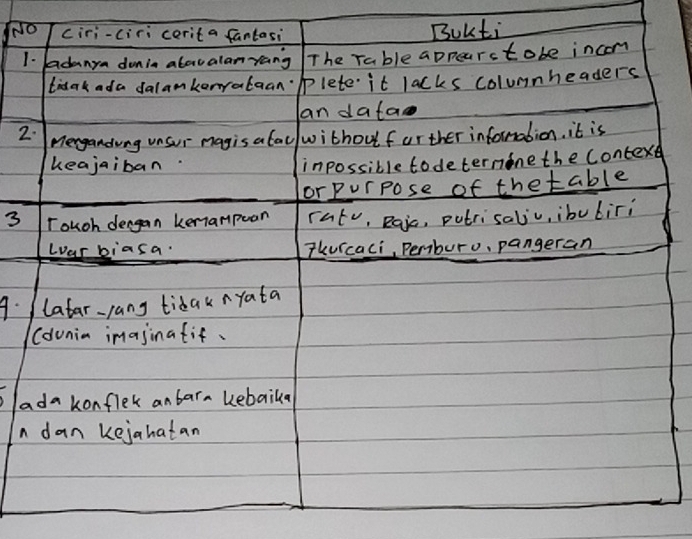 NO ciri-ciri cerita fantasi Bukti
1. adanya dunia atau alam yang The Table appears to be incom
tidak ada dalam kenyataan. plete. it lacks column headers
an data
2. Mengandung unsur magis atau without further information. it is
keajaiban. inpossible to determine the context
or purpose of the table
3 Tokoh dengan kemampuan ratu, Raja, putri salju, ibu tiri
luar biasa. 7kurcaci, Pemburu, pangeran
4. Latar yang tidak nyata
(dunia imajinatif.
5 ada konflek antara kebaika
n dan kejahatan